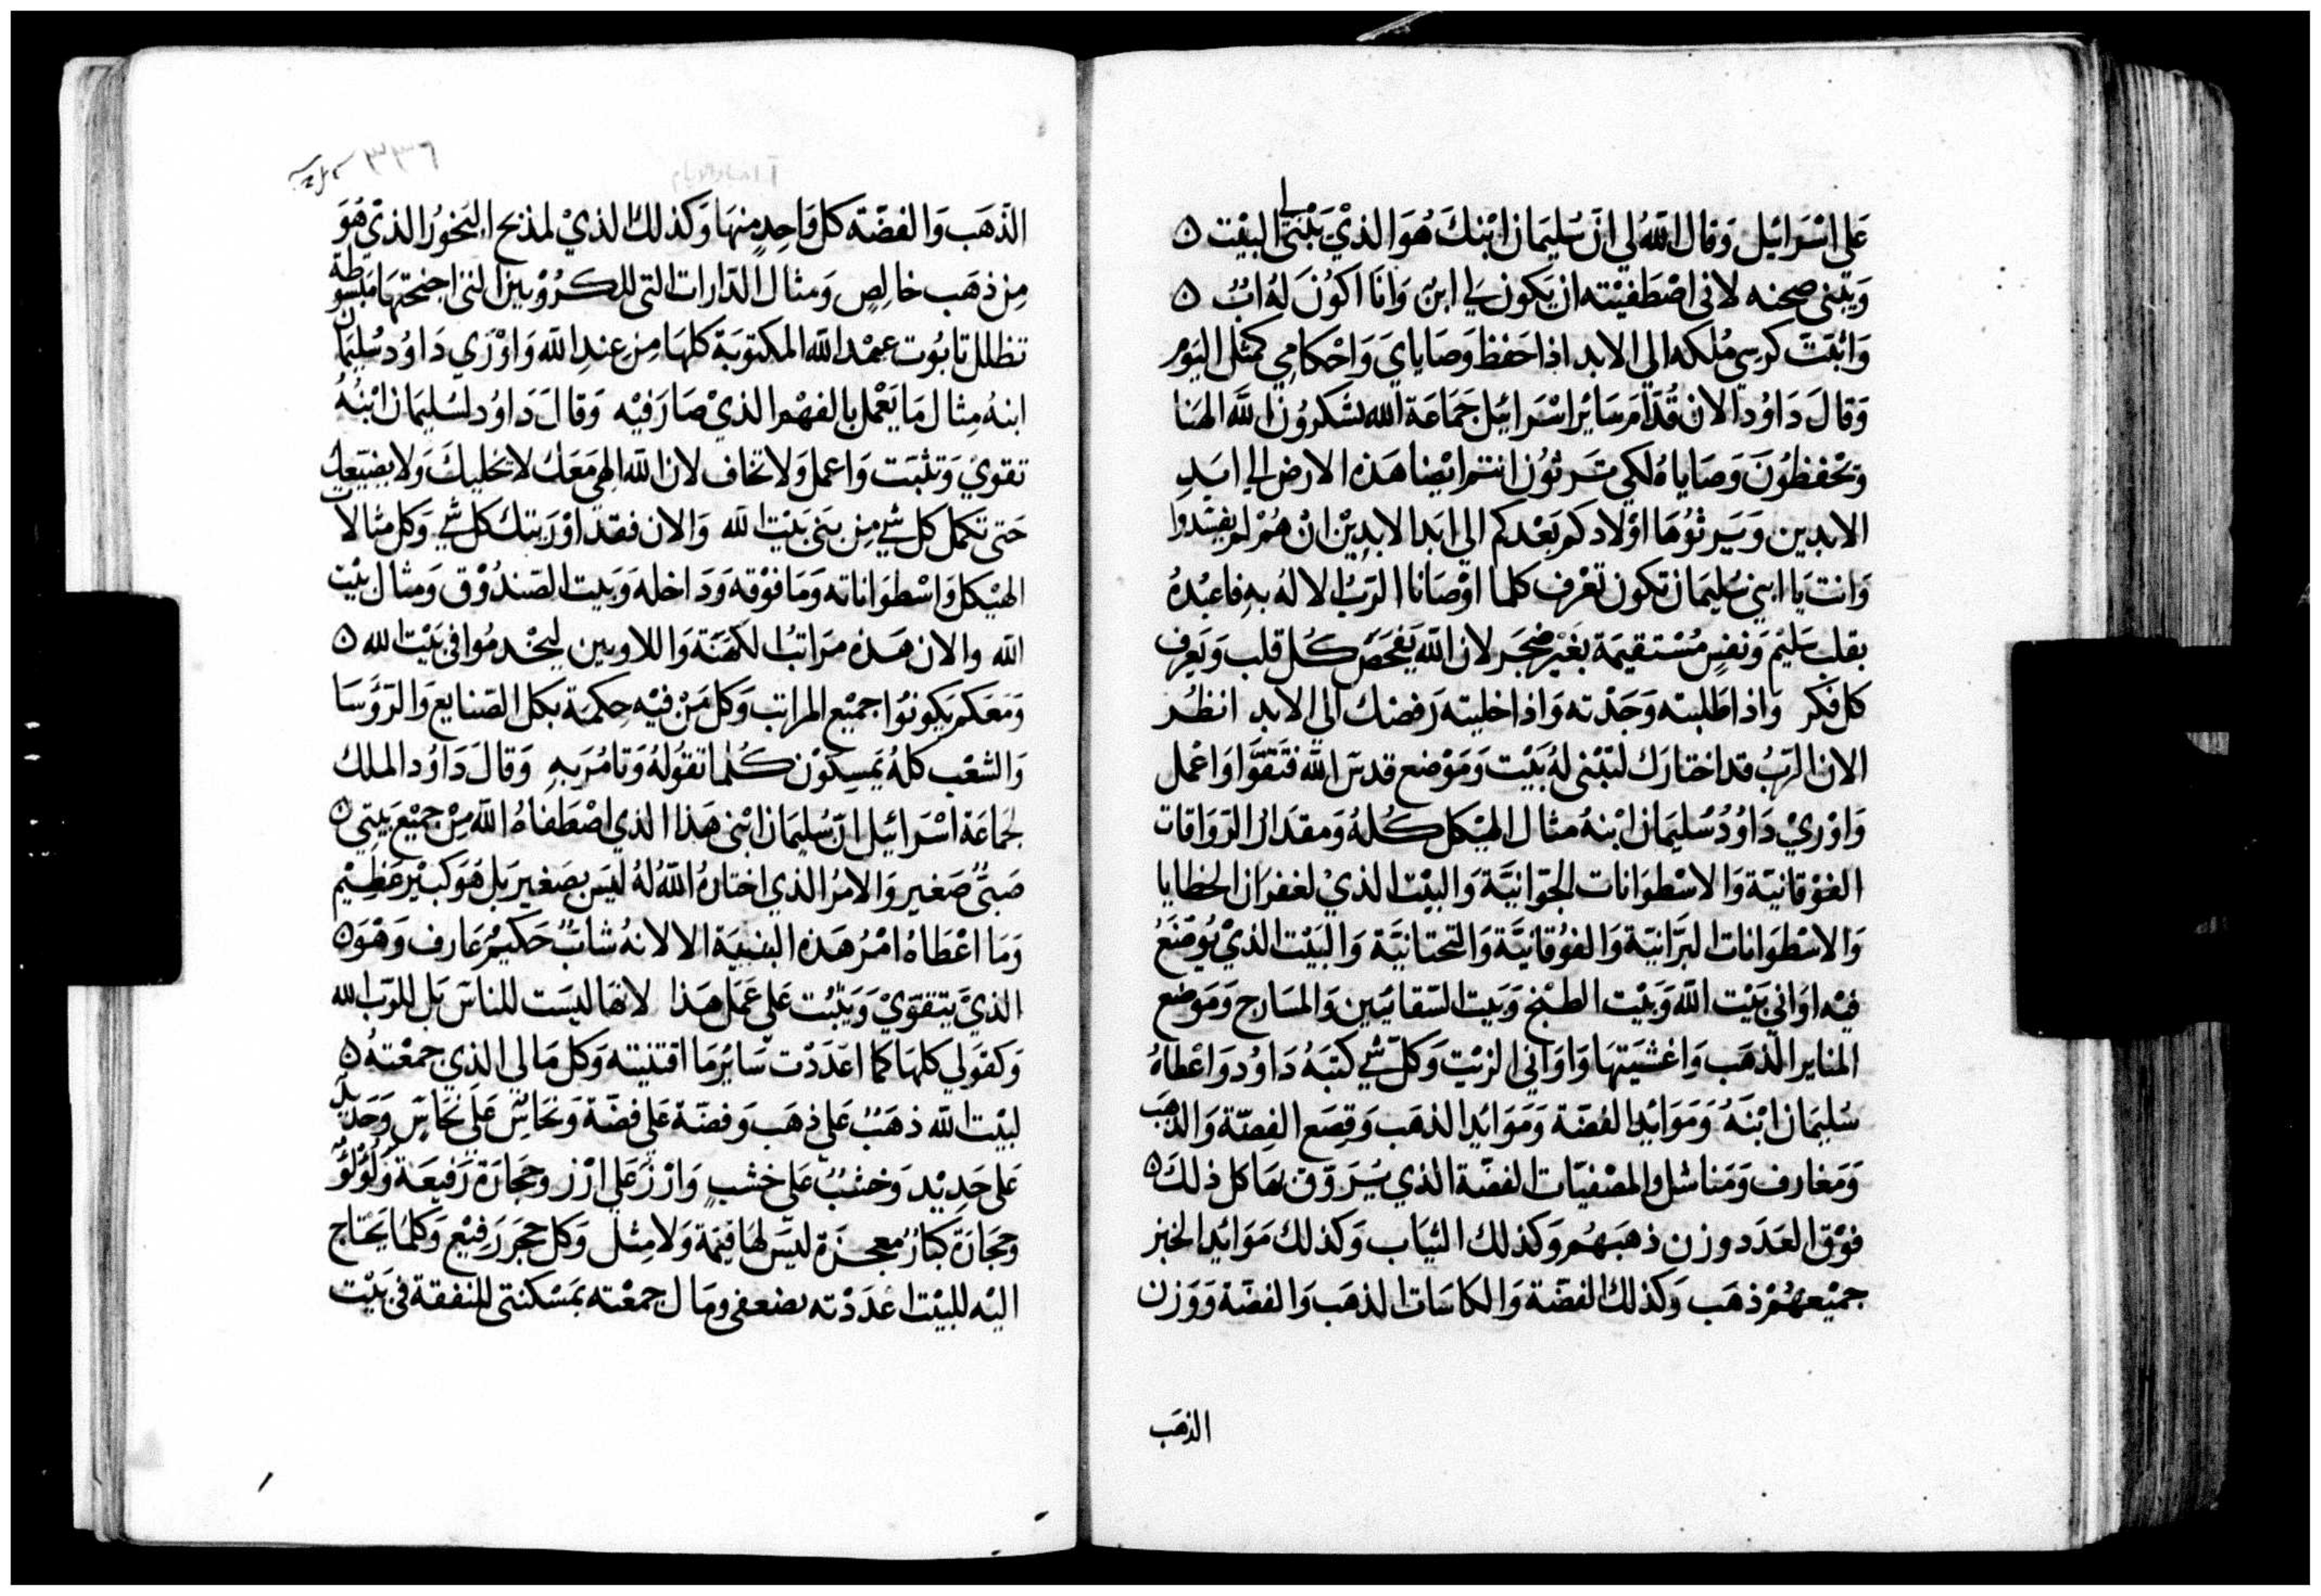 على اسْرَائيل وَقال اللّٰهُ لي انّ سُليمَان ابْنكَ هُوَ الذيْ يَبْنى لي البيْت ۵
وَيَبْني صحنه لانى اصْطَفيْته ان يَكون لي ابنٌ وَانَا اكُونَ لهُ ابٌ ۵
وَاثبّتّ كرسي مُلكه الي الابد اذا حَفظ وَصَايايَ وَاحْكامي كمثل اليَوْم
وَقالَ دَاوُد الان قُدَّامَ سَائر اسْرائيل جَمَاعَة الله تشكرُونَ اللّٰه الهنَا
وَتحْفظُونَ وَصَاياهُ لكي تَرثوُن انتم ايْضا هَذه الارض الي ابَدِ
الابدين وَيَرثوُهَا اوْلادكم بَعْدكم الي ابَد الابدِيْن انْ هُمْ لم يفسْدوا
وَانت يَا ابني سُليمَان تكون تعْرف كلما اوْصَانا الرّبُ الالهُ بهِ فاعبُدهُ
بقلب سَليْم وَنفسٍ مُسْتقيمَة بغَيْر ضجَر لان اللّٰه يَفحَصَ كُل قلب وَيَعرف
كل فكر وَاذا طَلبته وَجَدْته وَاذا خليته رَفضك الي الابد انظُر
الان الرّبُ قد اختارَك لتبْنى لهُ بَيْت وَمَوْضع قدسَ اللّٰه فتَقوَّا وَاعْمل
وَاوْريْ دَاوُدُ سُليمَان ابْنهُ مثال الهيْكل كُلهُ وَمقدَار الرّوَاقات
الفوْقانيّة وَالاسْطوَانات الجوّانيَّة وَالبيْت الذيْ لغفرَان الخطايا
وَالاسْطوَانات البرّانيّة وَالفوُقانيَّة وَالتحتانيَّة وَالبَيْت الذيْ يُوضَعُ
فيْه اوَاني بَيْت اللّٰه وَبَيْت الطبْخ وَبَيت السّقايَين وَالمسَارج وَمَوضع
المناير الذّهَب وَاغشيَتهَا وَاوَاني الزيْت وَكلّ شي كتبَهُ دَاوُد وَاعْطاهُ
سُليمَان ابْنَهُ وَمَوَائدِ الفضّة وَمَوَائدِ الذهَب وَقِصَع الفِضّة وَالذهَب
وَمَغارف وَمَناشل والمصْفيّات الفضّة الذي يُرَوّق بهَا كل ذلكَ ۵
فوْق العَدَد وزن ذهَبَهُم وَكذلك الثيَاب وَكذلك مَوَائدِ الخبز
جميْعهُمْ ذهَب وَكذلك الفضّة وَالكاسَات الذهَب وَالفضّة وَوَزن
الذهَب
٣٣٦
الذّهَب وَالفضّة كل وَاحِدٍ منهَا وَكذلك الذيْ لمذبح البَخوُر الذيْ هُوَ
مِن ذهَب خالِصٍ وَمثال الدّارات التى للكرُوْبين التى اجنحتهَا مَبسُوطة
تظلل تابُوت عهْد اللّٰه المكتوبَة كلهَا مِن عندِ اللّٰه وَاوْرَي دَاوُد سُليمَان
ابنهُ مِثال مَا يَعْمل بالفهْم الذيْ صَارَ فيْه وَقالَ دَاوُد لسُليمَان ابْنُهُ
تقويْ وَتثبَت وَاعمل وَلا تخاف لان اللّٰه الهي مَعَك لا يخليكَ وَلا يضيّعك
حَتى تكمل كل شي مِن بني بَيْت اللّٰه وَالان فقد اوْرَيتك كل شي وَكل مثالات
الهيْكل وَاسْطوَاناته وَمَا فوْقه وَدَاخله وَبَيت الصّندُوْق وَمثال بيْت
اللّٰه والان هَذه مرَاتبُ الكهَنَة وَاللاويين ليخْدمُوا فى بَيْت الله ۵
وَمَعَكم يَكونوُا جميْع المراتب وَكل مَنْ فيْه حِكمَة بكل الصّنايع وَالرّؤسَا
وَالشعْب كلهُ يَمسِكوْن كُلما تقوُلهُ وَتامُرَ بهِ وَقالَ دَاوُد الملك
لجمَاعَة اسْرَائيل انّ سُليمَان ابْنى هَذا الذي اصْطَفاهُ اللّٰه مِنْ جميْع بَيتي ۵
صَبىٌّ صَغير وَالامْرُ الذي اختارهُ اللّٰهُ لهُ ليَس بصَغير بَل هُوَ كبيْر عَظِيْم
وَمَا اعْطاهُ امْرُ هَذه البنيَة الا لانهُ شابٌ حَكيمٌ عَارف وَهْوَ ۵
الذيْ يَتقوّيْ وَيَثبُت عَلي عَمَل هَذا لانهَا ليسَت للناسَ بَل للرّب الله
وَكقولي كلهَا كما اعدَدْت سَائر مَا اقتنيته وَكل مَا لي الذي جمعْتهُ ۵
لبيْت اللّٰه ذهَبٌ عَلي ذهَب وَفضّة عَلي فضّة وَنحَاسٌ عَلي نحَاسٍ وَحَديْدٌ
عَلي حَدِيْد وَخشبٌ عَلي خشبٍ وَارْز عَلي ارْز وحجَارَة رَفيعَة وَلوُلؤٌ
وحجَارَة كبارٌ معجزة ليَس لهَا قيمَة وَلا مِثل وَكل حجَر رَفيْع وَكلمَا يَحْتاج
اليْه للبيْت اعدَدْته بضعفي وَمَال جمعْته بمَسْكنتى للنفقة فى بَيْت